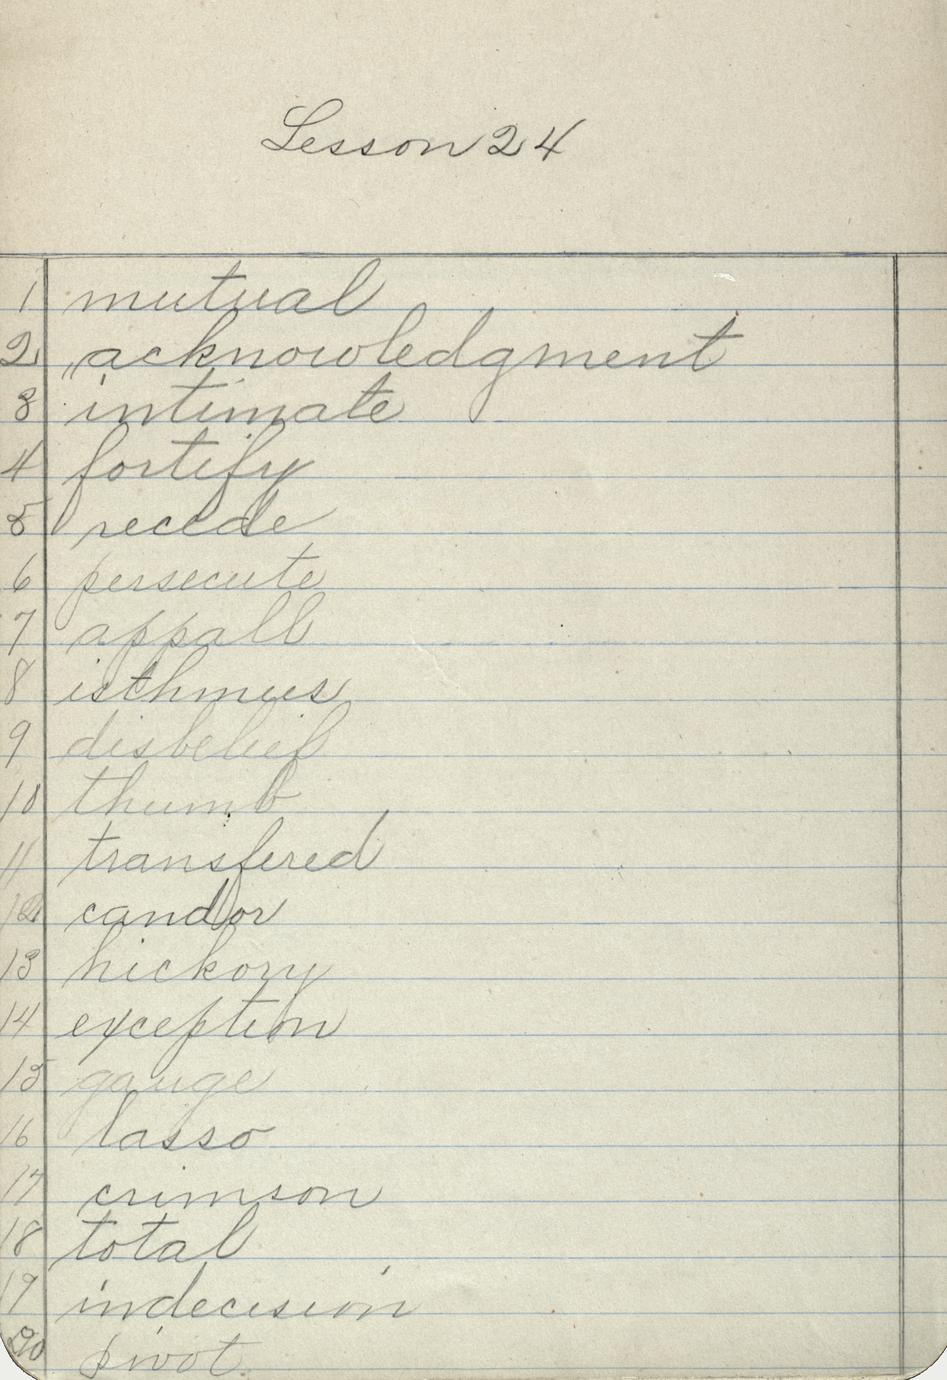 Lesson 24
1 mutual
2 "acknowledgment
3 intimate
4 fortify
5 recede
6 persecute
7 appall
8 isthmus
9 disbelief
10 thumb
11 transfered
12 candor
13 hickory
14 exception
15 gauge
16 lasso
17 crimson
18 total
19 indecision
20 pivot